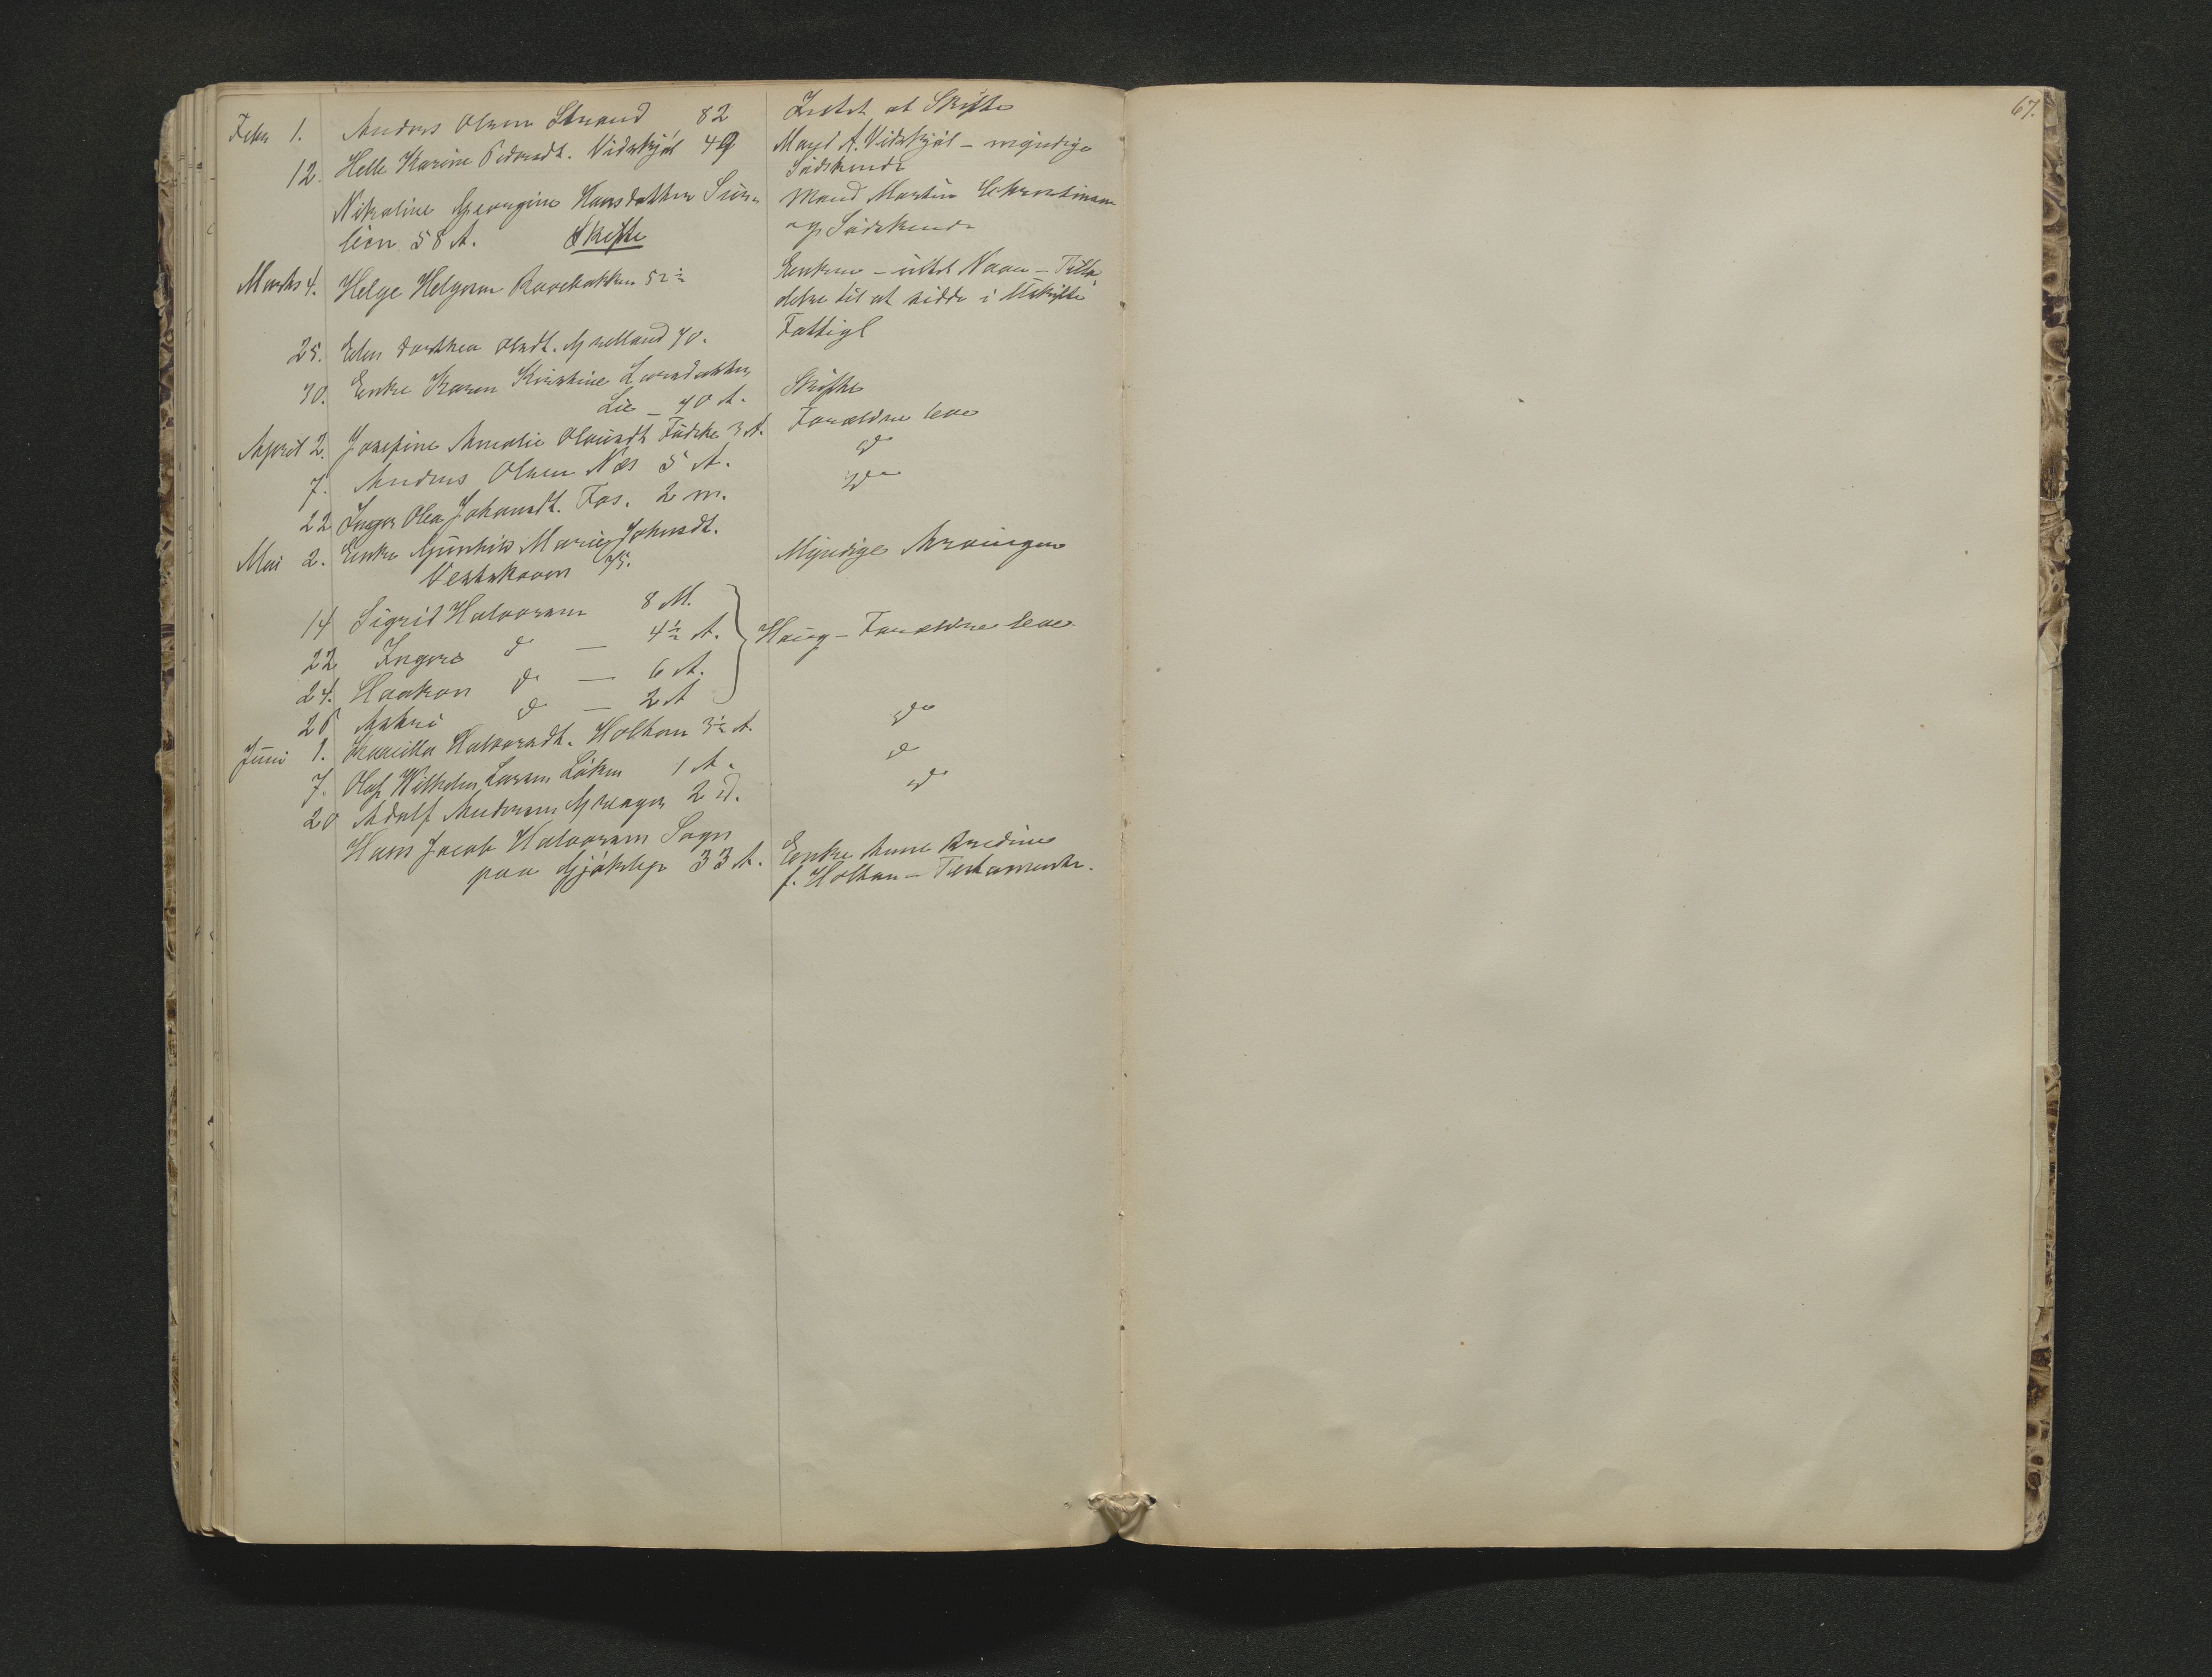 67.
Febr 1. Anders Olsen Strand 82 Intet at Skifte
12. Helle Karine Pedersdt. Vidskjøl 49 Mand A. Vidskjøl - myndige
Sødskende
Nikoline Georgine Hansdatter Mand Martin Christensen
lien 58 A. Skifte og Sødskende
Marts 4. Helge Helgesen 52½ Enken - uden Navn - Tilla
delse til at sidde i Uskifte
25. Elen Dorthea Olsdt. 70. Fattigl
30. Enke Karen Kirstine Larsdatter
Lie - 70 A. Skifte
April 2. Josefine Amalie 3 A. Forældre leve
7. Anders Olsen Næs 5 A. do
22 Inger Olea Johansdt. Fos. 2 m. do
Mai 2. Enke Gunhild Marie Johnsdt.
Vestskoven 75. Myndige Arvinger
14 Sigrid Halvorsen 8 M.
22 Ingeri do - 4½ A. Haug - Forældre leve
24. Haakon do - 6 A.
26 Askri do - 2 A
Juni 1. Halvorsdt. Holtan 3½ A. do
7. Olaf Wilhelm Larsen Løken 1 A. do
20 Adolf Andersen 2 d. do
Hans Jacob Halvorsen Sogn
paa 33 A. Enke Anne
f. Holtan - Testamente.